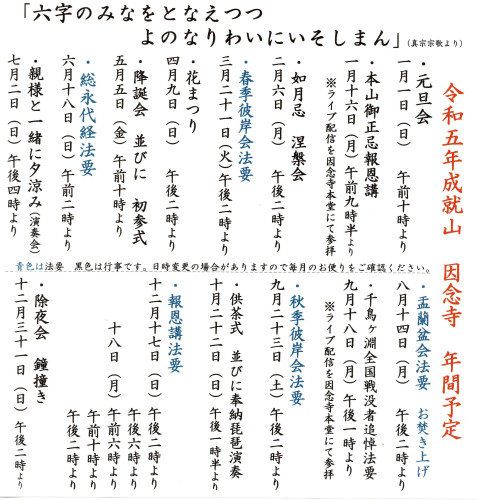 「六字のみなをとなえつつ
よのなりわいにいそしまん」(真宗宗歌より)
令和五年成就山 因念寺 年間予定
・元旦会
一月一日(日) 午前十時より
・本山御正忌報恩講
一月十六日(月)午前九時半より
※ライブ配信を因念寺本堂にて参拝
・如月忌 涅槃会
二月六日(月) 午後二時より
・春季彼岸会法要
三月二十一日(火)午後二時より
・花まつり
四月九日(日) 午後二時より
・降誕会 並びに 初参式
五月五日(金)午前十時より
・総永代経法要
六月十八日(日)午前二時より
・親様と一緒に夕涼み(演奏会)
七月二日(日)午後四時より
青色は法要 黒色は行事です。日時変更の場合がありますので毎月のお便りをご確認ください。
・盂蘭盆会法要 お焚き上げ
八月十四日(月) 午後二時より
・千鳥ヶ淵全国戦没者追悼法要
九月十八日(月)午後一時より
※ライブ配信を因念寺本堂にて参拝
・秋季彼岸会法要
九月二十三日(土)午後二時より
・供茶式 並びに奉納琵琶演奏
十月二十二日(日)午後一時半より
・報恩講法要
十二月十七日(日)午後二時より
午後六時より
十八日(月) 午前六時より
午前十時より
午後二時より
・除夜会 鐘撞き
十二月三十一日(日)午後二時より